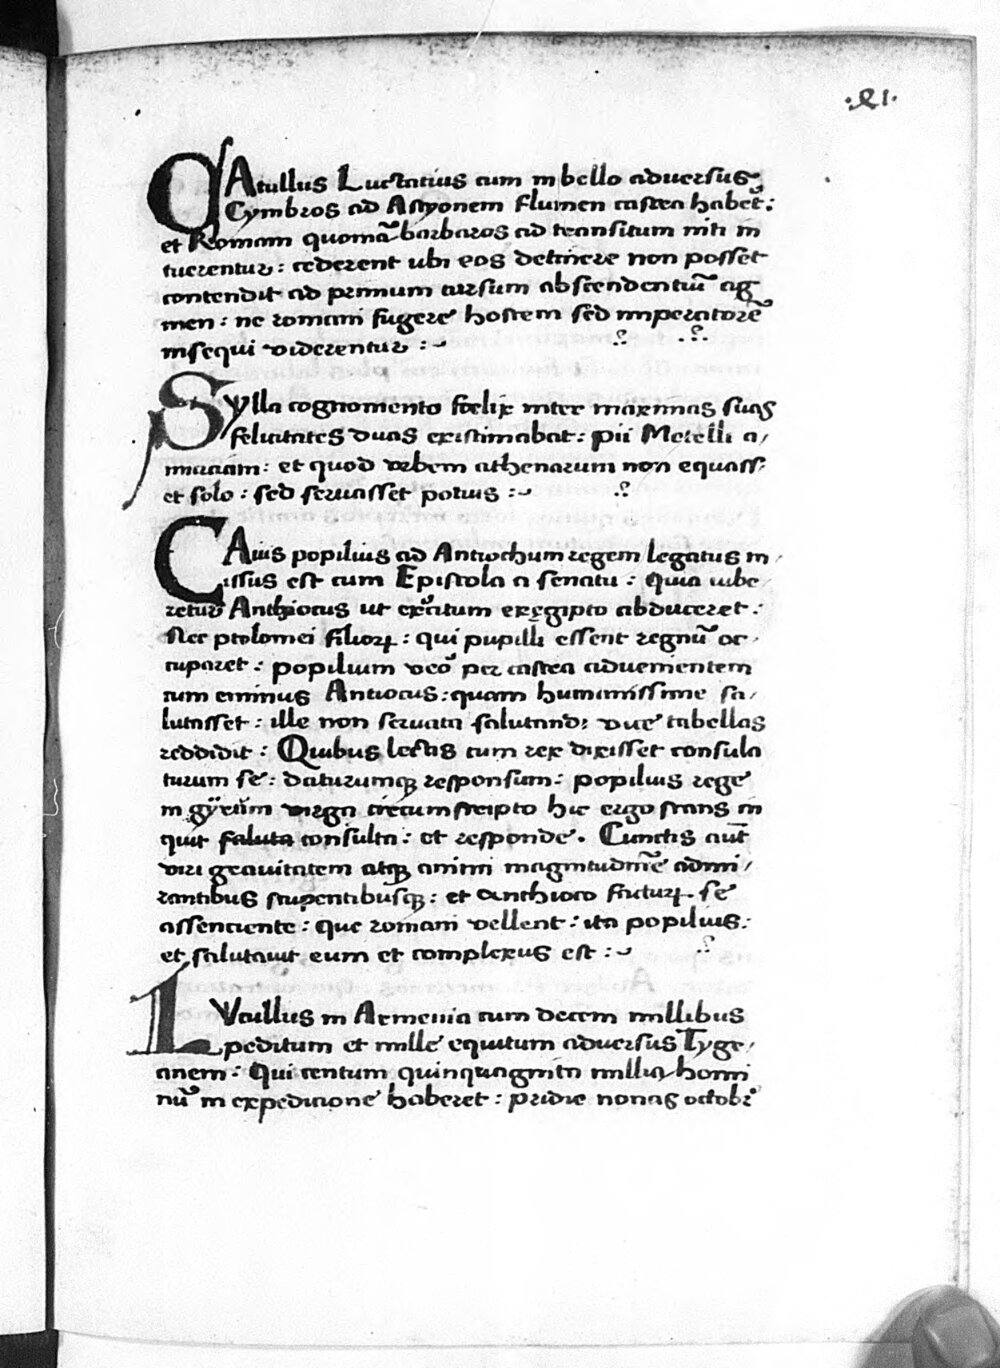 .XI.
QAtullus Luctatius cum in bello aduersus
Cymbros ad Asyonem flumen castra haberet:
et Romam quoniã barbaros ad transitum niti in
tuerentur: cederent ubi eos detinere non posset
contendit ad primum cursum abscendentiũ ag
men: ne romani fugere hostem sed imperatorẽ
insequi viderentur:~
SYlla cognomento foelix inter maximas suas
felicitates duas existimabat: pii Metelli a/
miciciam: et quod urbem athenarum non equass;
et solo: sed seruasset potius:~
CAius popilius ad Antiochum regem legatus m/
issus est cum Epistola a senatu: Quia iube/
retur Anthiocus ut exercitum ex egipto abduceret:
Nec ptolomei filioꝝ: qui pupilli essent regnũ oc/
cuparet: popilium vero per castra aduenientem
cum eminus Antiocus: quam humanissime sa/
lutasset: ille non seruata salutandi vue tabellas
reddidit: Quibus lectis cum rex dixisset consula
turum se: daturumqꝫ responsum: popilius rege
in gyrum virga circumscripto hic ergo stans in
quit saluta consulta: et responde. Cunctis aut̃
viri grauitatem atqꝫ animi magnitudinẽ admi/
rantibus stupentibusqꝫ: et anthioco facturꝝ se
assenciente: que romani vellent: ita popilius:
et salutauit eum et complexus est:~
LVcullus in Armenia cum decem millibus
peditum et mille equitum aduersus Tygr/
anem: Qui centum quinquaginta millia homi
nũ in expedicione haberet: pridie nonas octobr̃